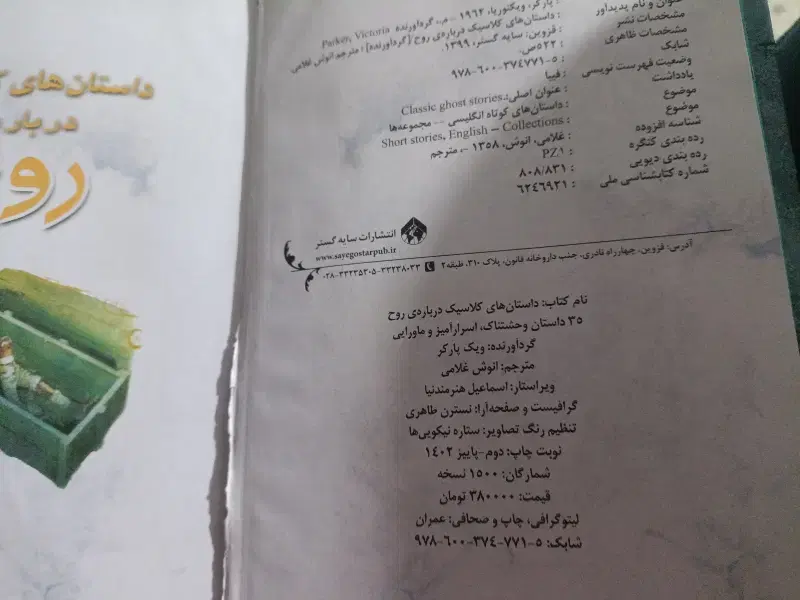 عنوان و نام پدیدآور
: پارکر، ویکتوریا، ۱۹۶۲ - م.، گردآورنده Parker, Victoria
: داستان‌های کلاسیک درباره‌ی روح/[گردآورنده]؛ مترجم انوش غلامی
مشخصات نشر : قزوین: سایه گستر، ۱۳۹۹.
مشخصات ظاهری : ۵۲۲ص.
شابک : ۹۷۸-۶۰۰-۳۷۴۷۷۱-۵
وضعیت فهرست نویسی : فیپا
یادداشت : عنوان اصلی: Classic ghost stories.
موضوع : داستان‌های کوتاه انگلیسی -- مجموعه‌ها
موضوع : Short stories, English – Collections
شناسه افزوده : غلامی، انوش، ۱۳۵۸ -، مترجم
رده بندی کنگره : PZ۱
رده بندی دیویی : ۸۰۸/۸۳۱
شماره کتابشناسی ملی : ۶۲۴۶۹۲۱
انتشارات سایه گستر
www.sayegostarpub.ir
آدرس: قزوین، چهارراه نادری، جنب داروخانه قانون، پلاک ۳۱۰، طبقه۲ ۰۲۸-۳۳۲۳۵۳۰۵-۳۳۲۳۸۰۳۳
نام کتاب: داستان‌های کلاسیک درباره‌ی روح
۳۵ داستان وحشتناک، اسرارآمیز و ماورایی
گردآورنده: ویک پارکر
مترجم: انوش غلامی
ویراستار: اسماعیل هنرمندنیا
گرافیست و صفحه‌آرا: نسترن طاهری
تنظیم رنگ تصاویر: ستاره نیکویی‌ها
نوبت چاپ: دوم-پاییز ۱۴۰۲
شمارگان: ۱۵۰۰ نسخه
قیمت: ۳۸۰۰۰۰ تومان
لیتوگرافی، چاپ و صحافی: عمران
شابک: ۵-۷۷۱-۳۷۴-۶۰۰-۹۷۸
داستان‌های